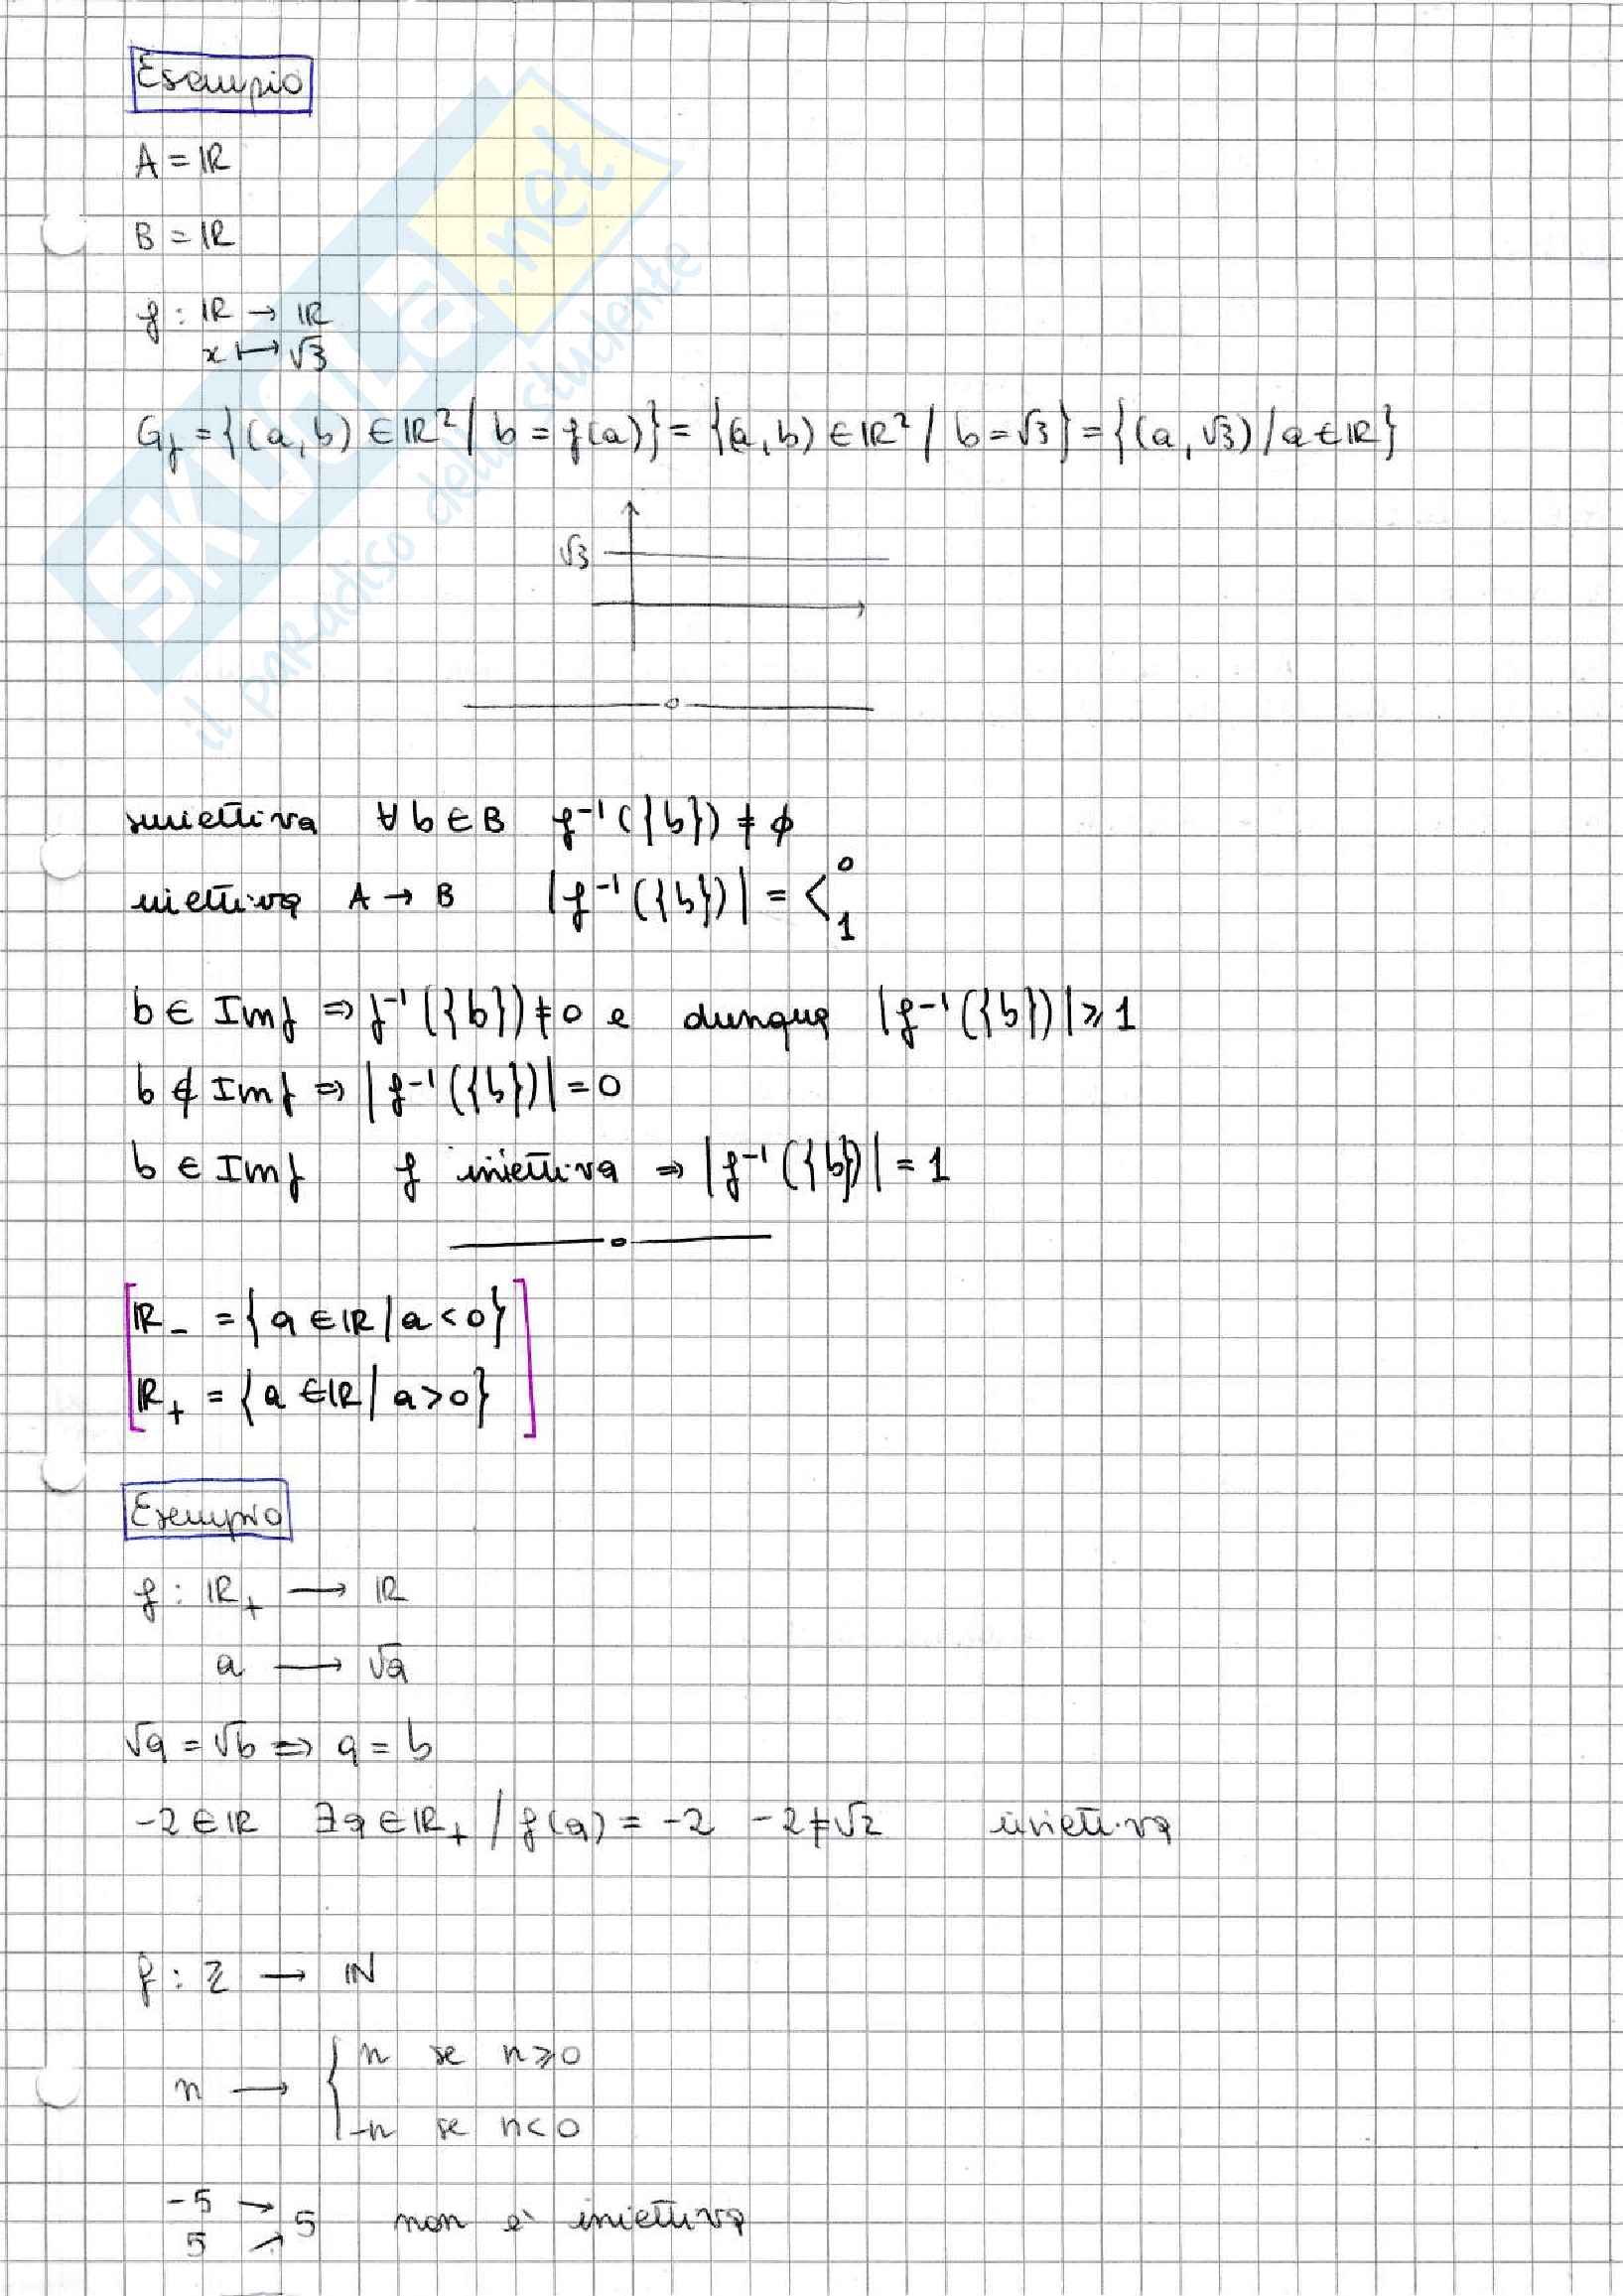 Esempio
A = ℝ
B = ℝ
f : ℝ → ℝ
x ↦ √3
G_f = {(a, b) ∈ ℝ² / b = f(a)} = {(a, b) ∈ ℝ² / b = √3} = {(a, √3) / a ∈ ℝ}
√3
suriettiva ∀ b ∈ B f⁻¹({b}) ≠ ∅
iniettiva A → B |f⁻¹({b})| = < 0
1
b ∈ Imf ⇒ f⁻¹({b}) ≠ 0 e dunque |f⁻¹({b})| ⩾ 1
b ∉ Imf ⇒ |f⁻¹({b})| = 0
b ∈ Imf f iniettiva ⇒ |f⁻¹({b})| = 1
ℝ₋ = {a ∈ ℝ / a < 0}
ℝ₊ = {a ∈ ℝ / a > 0}
Esempio
f : ℝ₊ → ℝ
a → √a
√a = √b ⇒ a = b
-2 ∈ ℝ ∃ a ∈ ℝ₊ / f(a) = -2 -2 ≠ √2 iniettiva
f : ℤ → ℕ
n se n ⩾ 0
n → {
-n se n < 0
-5 →
5 non è iniettiva
5 ↗
SKUOLA.net
il paradiso dello studente